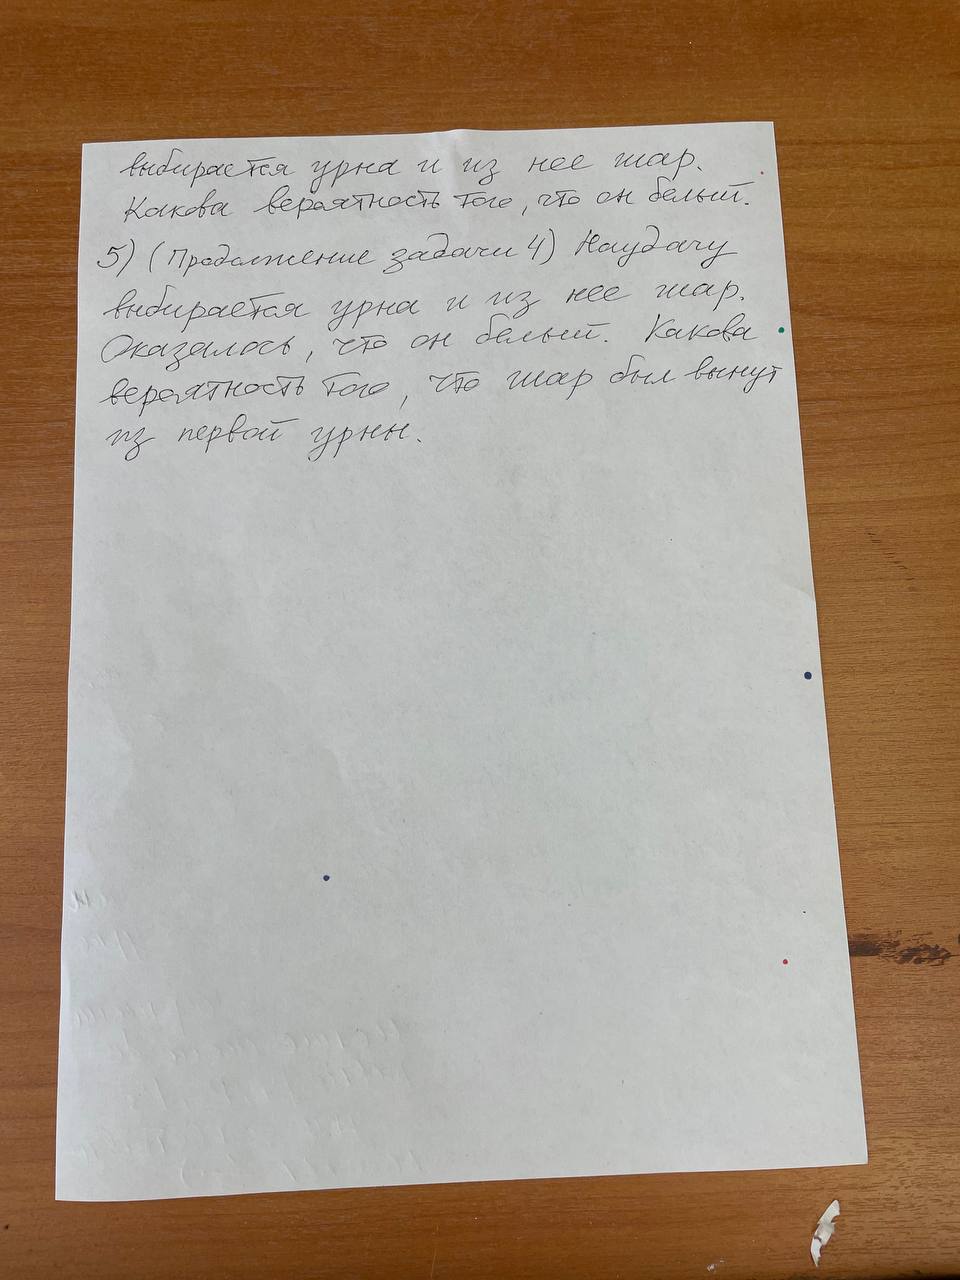 выбирается урна и из нее шар.
Какова вероятность того, что он белый.
5) (Продолжение задачи 4) Наудачу
выбирается урна и из нее шар.
Оказалось, что он белый. Какова
вероятность того, что шар был вынут
из первой урны.